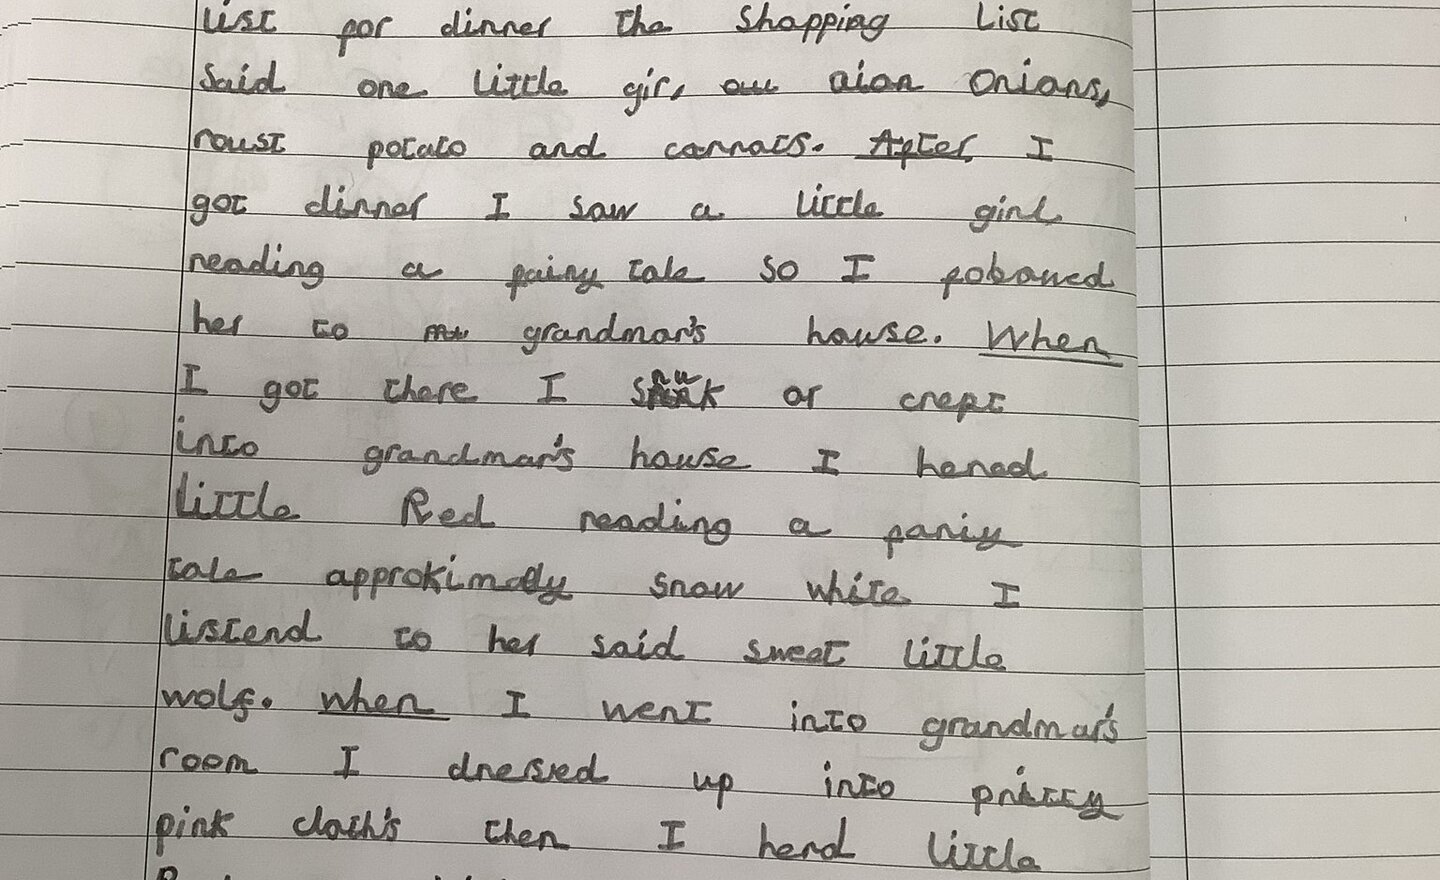 list for dinner the shopping list
said one little girl, aion onians,
roust potato and carrats. After I
got dinner I saw a little girl
reading a fairy tale so I
her to grandmar's house. When
I got there I or crept
into grandmar's house I hered
little Red reading a fariy
tale approkimatly snow white I
listend to her said sweet little
wolf. when I went into grandmar's
room I dressed up into pritty
pink cloth's then I herd little